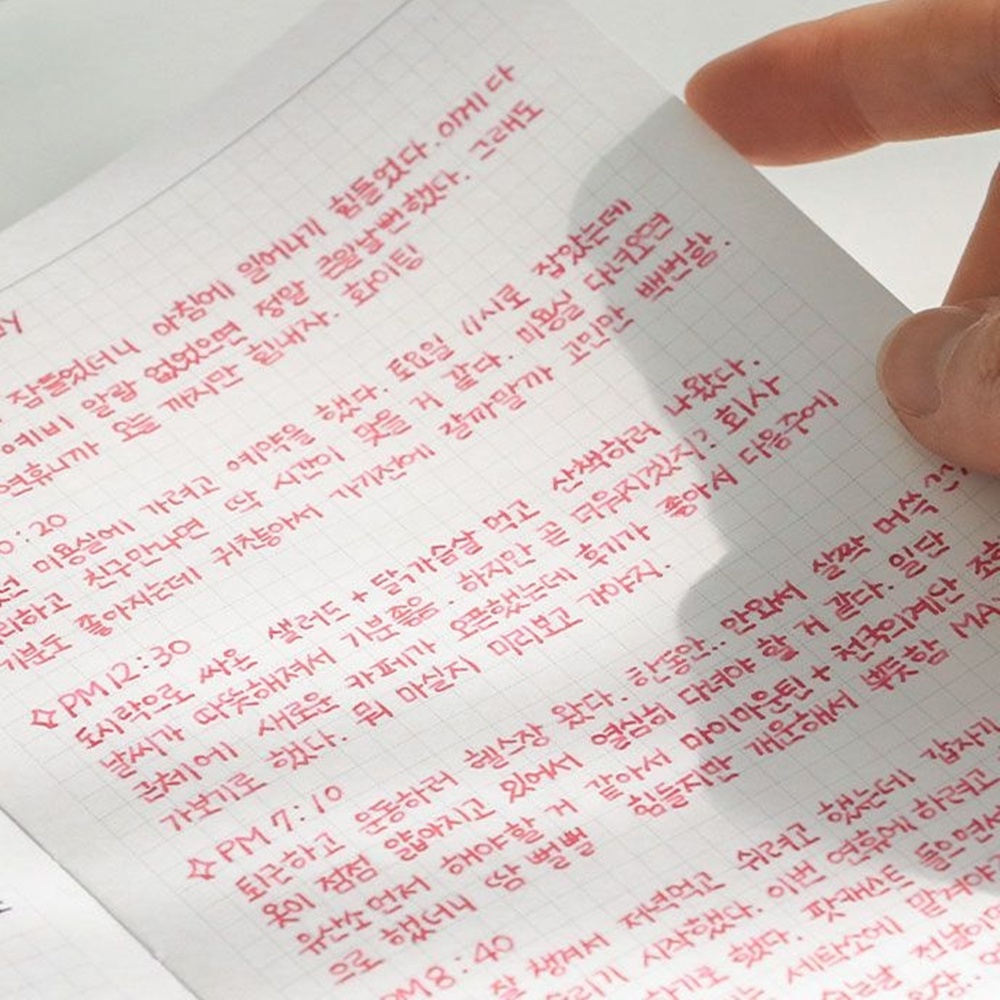 잠들었더니 아침에 일어나기 힘들었다. 이게 다
예비 알람 없었으면 정말 큰일날뻔했다. 그래도
연휴니까 오늘 까지만 힘내자. 화이팅
:20
미용실에 가려고 예약을 했다. 토요일 11시로 잡았는데
친구만나면 딱 시간이 맞을 거 같다. 미용실 다녀오면
기분도 좋아지는데 귀찮아서 가기전에 갈까말까 고민만 백번함.
✧PM 12:30
도시락으로 싸온 샐러드 + 닭가슴살 먹고 산책하러 나왔다.
날씨가 따뜻해져서 기분좋음. 하지만 곧 더워지겠지? 회사
근처에 새로운 카페가 오픈했는데 후기가 좋아서 다음주에
가보기로 했다. 뭐 마실지 미리보고 가야지.
✧PM 7:10
퇴근하고 운동하러 헬스장 왔다. 한동안.. 안와서 살짝 머쓱
옷이 점점 얇아지고 있어서 열심히 다녀야 할 거 같다. 일단
유산소 먼저 해야할 거 같아서 마이마운틴 + 천국의계단
으로 했더니 땀 뻘뻘 힘들지만 개운해서 뿌듯함
PM 8:40
잘 챙겨서 저녁먹고 쉬려고 했는데 갑자기
시작했다. 이번 연휴에 하려고
했다. 팟캐스트 들으면서
세탁소에 맡겨야